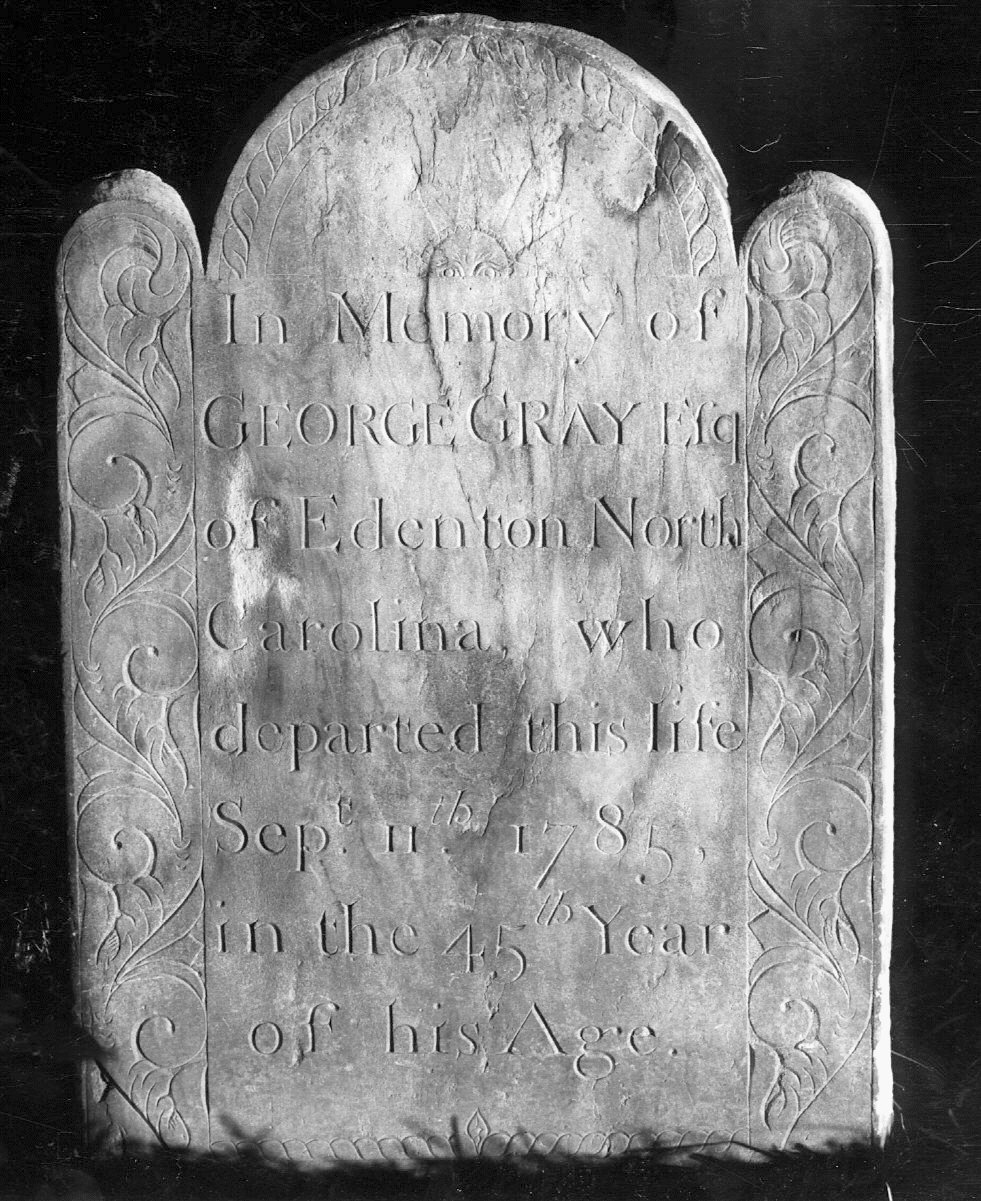 In Memory of
GEORGE GRAY Eſq
of Edenton North
Carolina, who
departed this life
Sep.t 11th. 1785,
in the 45th Year
of his Age.